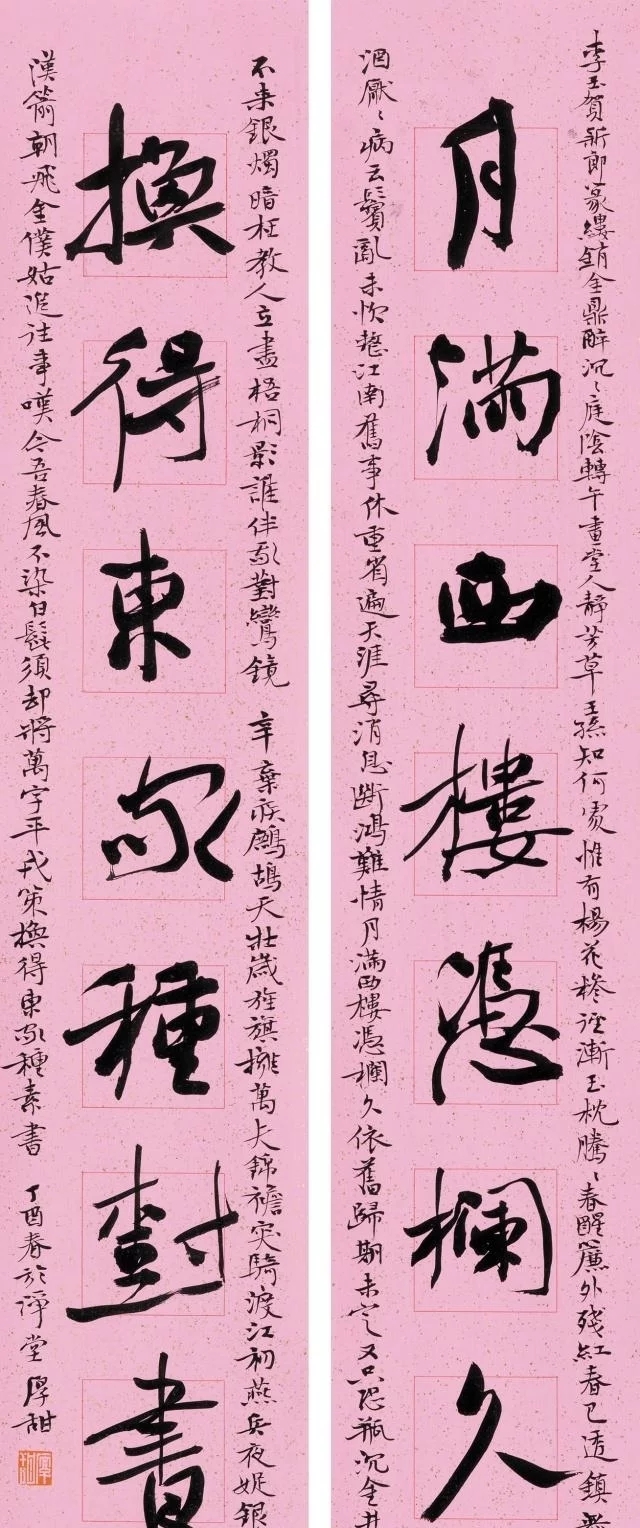 李玉賀新郎篆縷銷金鼎醉沉々庭陰轉午畫堂人靜芳草王孫知何處惟有楊花糝逕漸玉枕騰々春醒簾外殘紅春已透鎮無
月滿西樓憑欄久
酒厭々病云鬢亂未忺整江南舊事休重省遍天涯尋消息斷鴻難情月滿西樓憑欄久依舊歸期未定又只恐瓶沉金井
不來銀燭暗枉教人立盡梧桐影誰伴我對鸞鏡 辛棄疾鷓鴣天壯歲旌旗擁萬夫錦襜突騎渡江初燕兵夜娖銀
換得東家種樹書
漢箭朝飛金僕姑追往事嘆今吾春風不染白髭須却將萬字平戎策換得東家種素書 丁酉春於淨堂 厚甜